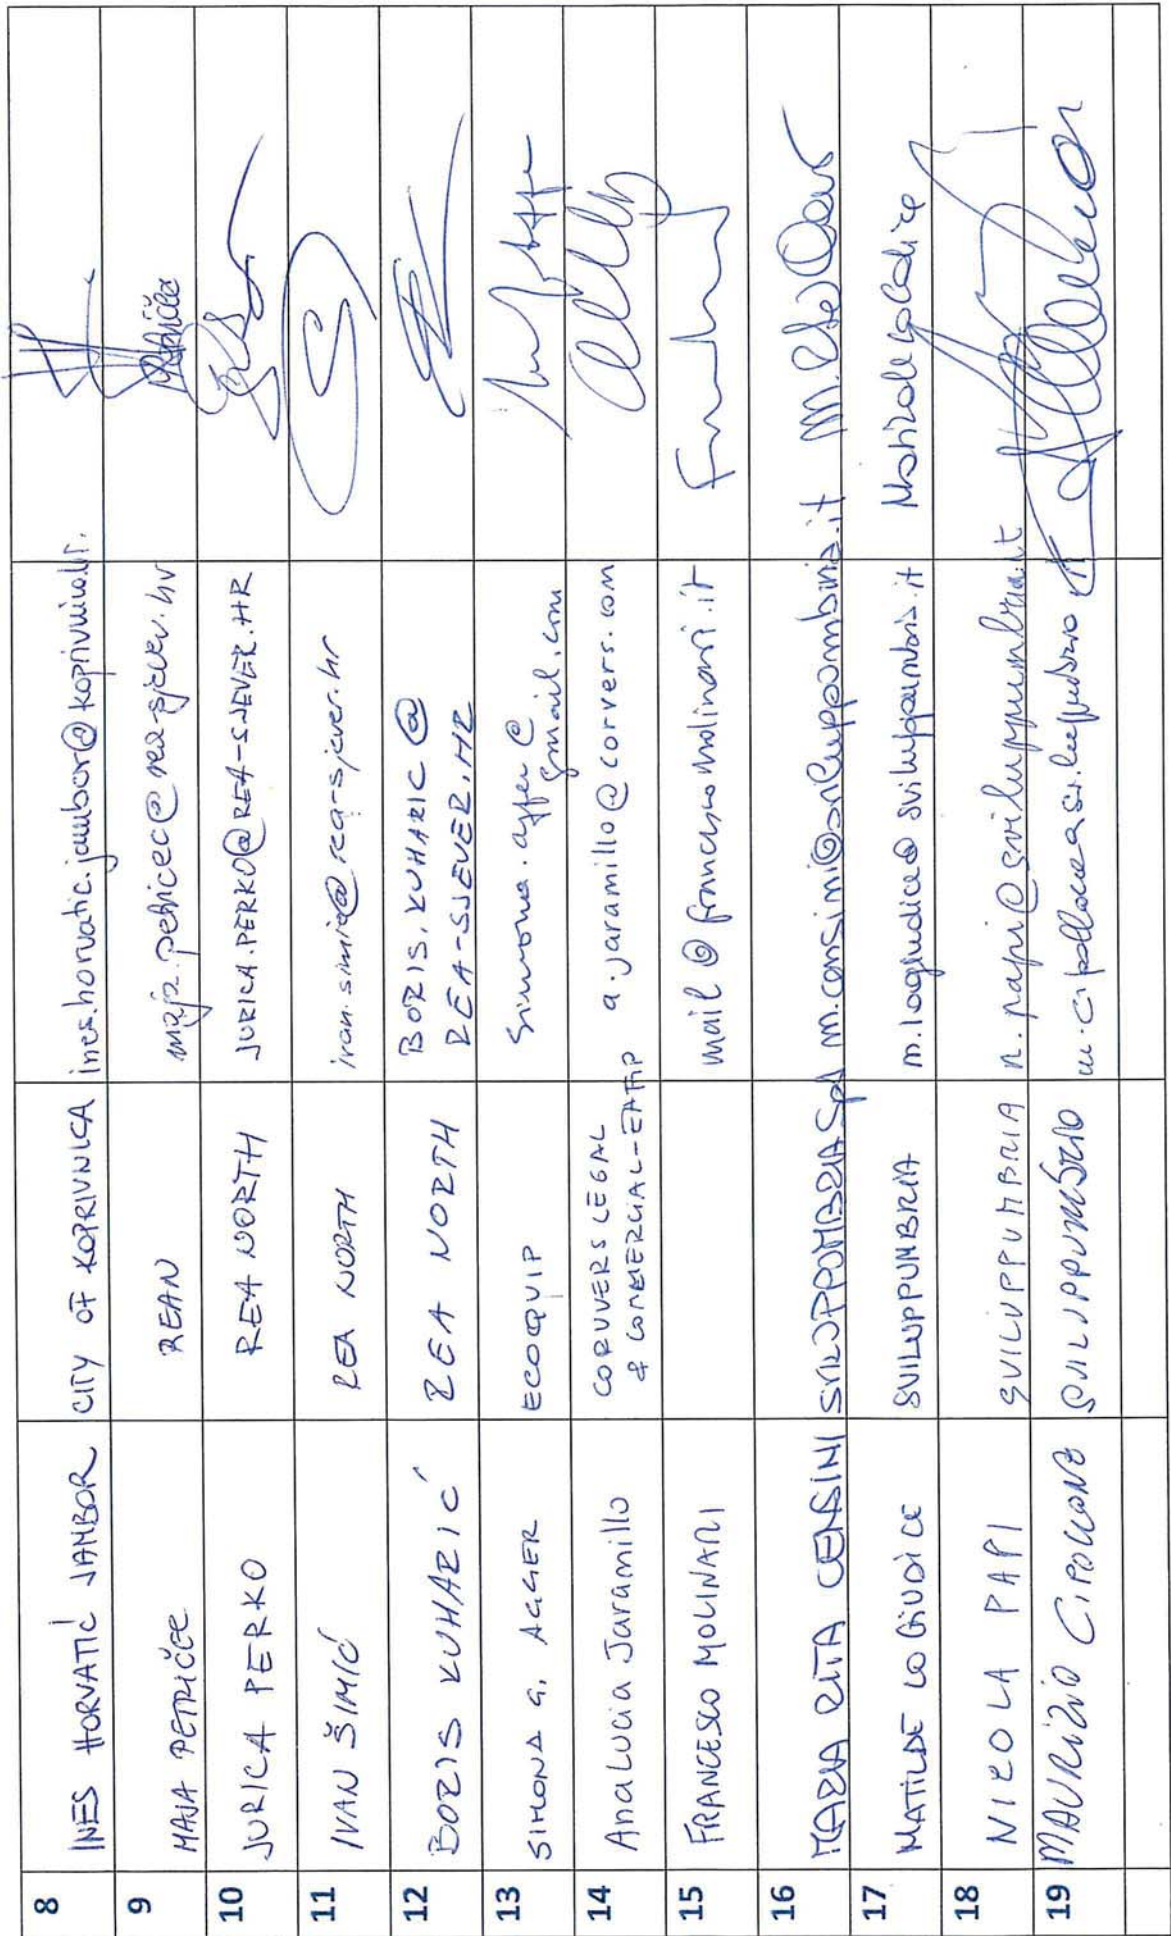 8 INES HORVATIĆ JAMBOR CITY OF KOPRIVNICA ines.horvatic.jambor@koprivnica.hr.
9 MAJA PETRIČEC REAN maja.petricec@rea-sjever.hr
10 JURICA PERKO REA NORTH JURICA.PERKO@REA-SJEVER.HR
11 IVAN ŠIMIĆ REA NORTH ivan.simic@rea-sjever.hr
12 BORIS KUHARIĆ REA NORTH BORIS.KUHARIC@
REA-SJEVER.HR
13 SIMONA G. AGGER ECOQUIP simona.agger@
gmail.com
14 AnaLucia Jaramillo CORUVERS LEGAL a.jaramillo@corvers.com
& COMERCIAL-EAFIP
15 FRANCESCO MOLINARI mail@francescomolinari.it
16 MARIA RITA CENSINI SVILUPPOMBRIA SpA m.censimi@sviluppombria.it
17 MATILDE LO GIUDICE SVILUPPUMBRIA m.logiudice@sviluppumbria.it Matilde Lo Giudice
18 NICOLA PAPI SVILUPPUMBRIA n.papi@sviluppumbria.it
19 MAURIZIO CIPOLLONE SVILUPPUMBRIA